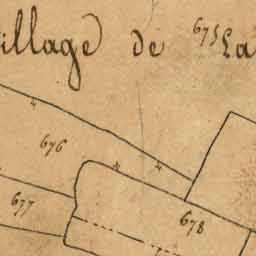 illage de 675 La
676
677
678